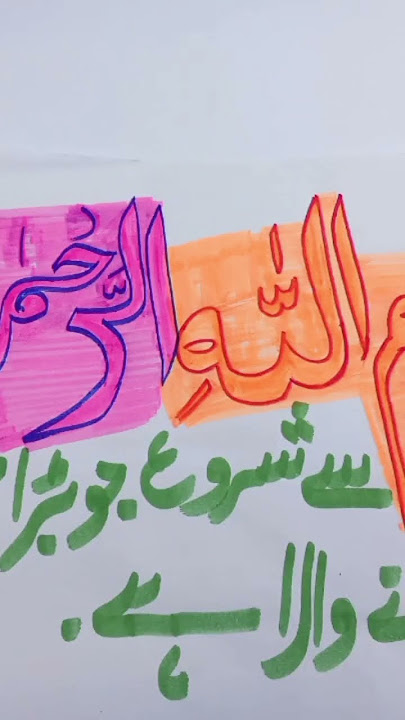 اللّٰهِ الرَّحْم
سے شروع جو بڑا
والا ہے۔